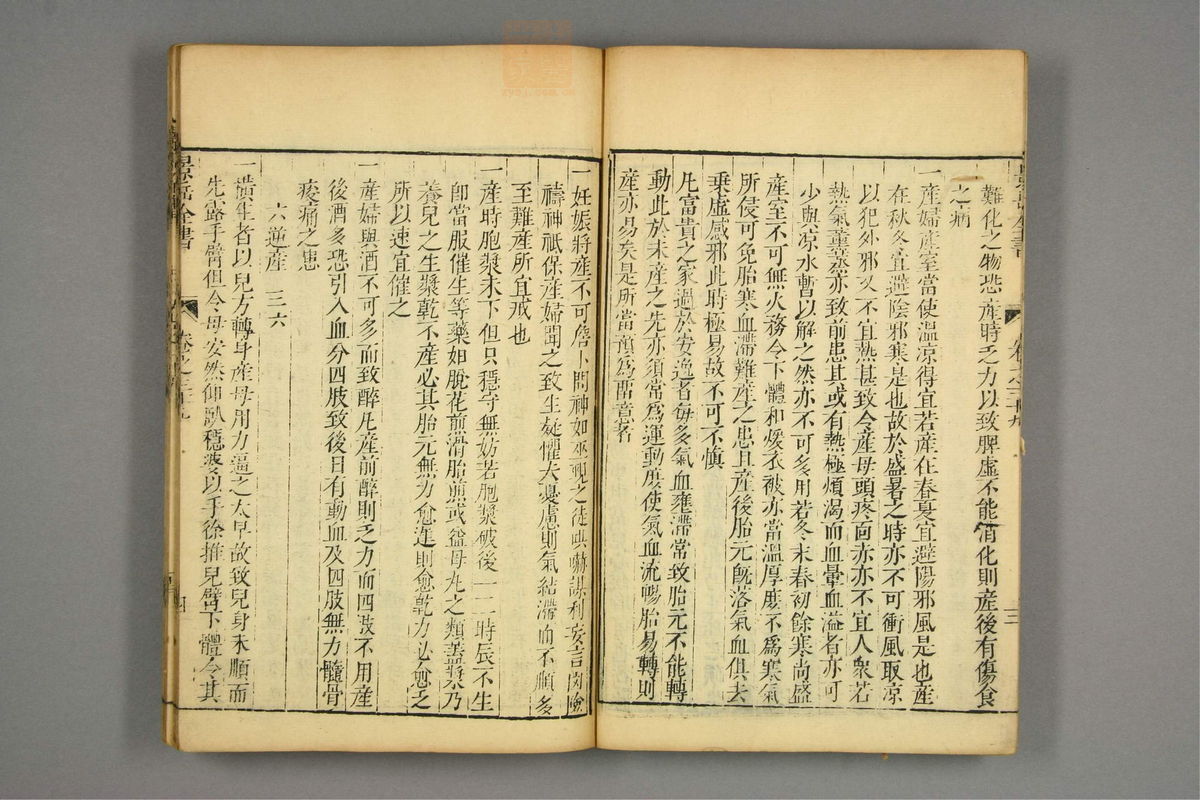 難化之物恐産時乏力以致脾虛不能消化則產後有傷食
之病
一產婦產室當使溫凉得宜若產在春夏宜避陽邪風是也產
在秋冬宜避陰邪寒是也故於盛暑之時亦不可衝風取凉
以犯外邪又不宜熱甚致令產母頭疼面赤亦不宜人衆若
熱氣薰蒸亦致前患其或有熱極煩渴而血暈血溢者亦可
少與凉水暫以解之然亦不可多用若冬末春初餘寒尚盛
產室不可無火務令下體和煖衣被亦當溫厚庶不爲寒氣
所侵可免胎寒血滯難產之患且產後胎元既落氣血俱去
乗虛感邪此時極易故不可不慎
凡富貴之家過於安逸者每多氣血壅滯常致胎元不能轉
動此於未產之先亦須常爲運動庶使氣血流暢胎易轉則
產亦易矣是所當預爲留意者
三
景岳全書
一妊娠將產不可詹卜問神如巫覡之徒哄嚇謀利妄言凶險
禱神祇保產婦聞之致生疑懼夫憂慮則氣結滯而不順多
至難產所宜戒也
一產時胞漿未下但只穩守無妨若胞漿破後一二時辰不生
即當服催生等藥如脫花煎滑胎煎或益母丸之類蓋漿乃
養兒之生漿乾不產必其胎元無力愈遲則愈乾力必愈乏
所以速宜催之
一產婦與酒不可多而致醉凡產前醉則乏力而四肢不用產
後酒多恐引入血分四肢致後日有動血及四肢無力髓骨
痠痛之患
六逆產　三六
一橫生者以兒方轉身產母用力逼之太早故致兒身未順而
先露手臂但令母安然仰臥穩婆以手徐推兒臂下體令其
景岳全書
卷之三十九
四